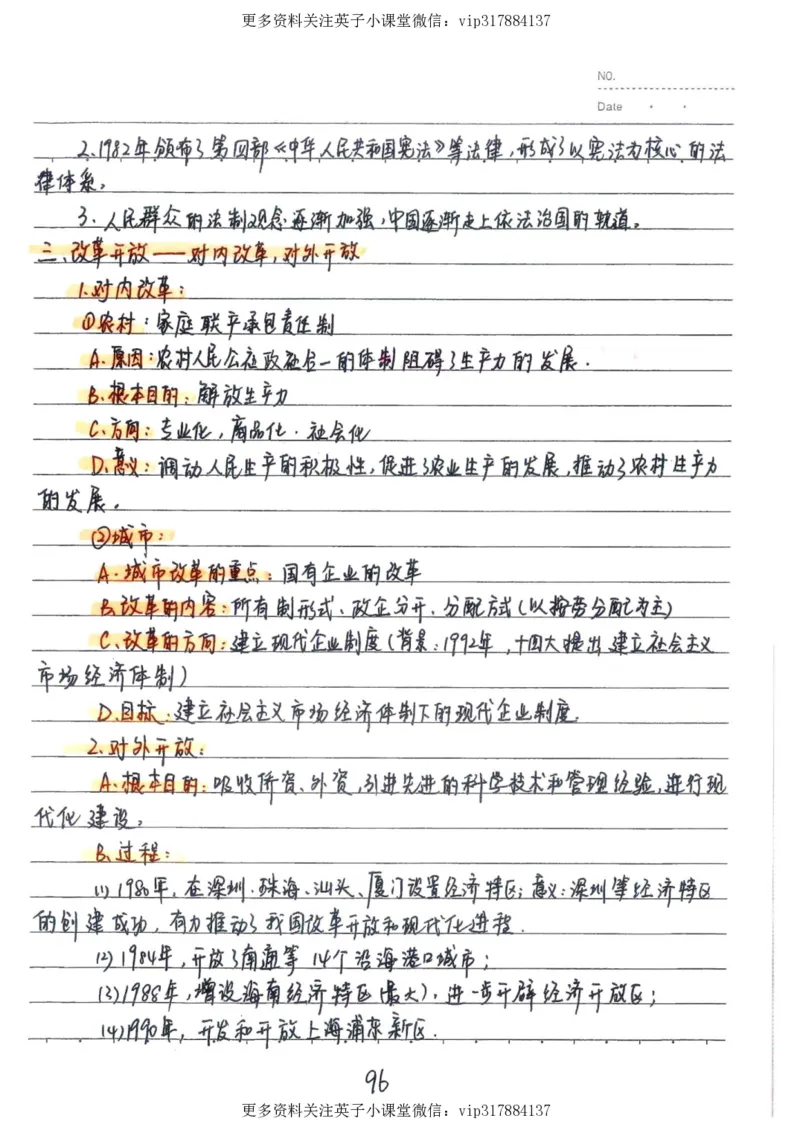 更多资料关注英子小课堂微信：vip317884137
NO.
Date
2、1982年颁布了第四部《中华人民共和国宪法》等法律，形成了以宪法为核心的法
律体系。
3、人民群众的法制观念逐渐加强，中国逐渐走上依法治国的轨道。
三、改革开放——对内改革，对外开放
1.对内改革：
①农村：家庭联产承包责任制
A.原因：农村人民公社政社合一的体制阻碍了生产力的发展．
B.根本目的：解放生产力
C.方向：专业化，商品化．社会化
D.意义：调动人民生产的积极性，促进了农业生产的发展，推动了农村生产力
的发展。
②城市：
A.城市改革的重点：国有企业的改革
B.改革的内容：所有制形式、政企分开、分配方式（以按劳分配为主）
C.改革的方向：建立现代企业制度（背景：1992年，十四大提出建立社会主义
市场经济体制）
D.目标：建立社会主义市场经济体制下的现代企业制度．
2.对外开放：
A.根本目的：吸收侨资、外资，引进先进的科学技术和管理经验，进行现
代化建设。
B.过程：
(1)1980年，在深圳、珠海、汕头、厦门设置经济特区；意义：深圳等经济特区
的创建成功，有力推动了我国改革开放和现代化进程．
(2)1984年，开放了南通等14个沿海港口城市；
(3)1988年，增设海南经济特区（最大），进一步开辟经济开放区；
(4)1990年，开发和开放上海浦东新区．
96
更多资料关注英子小课堂微信：vip317884137